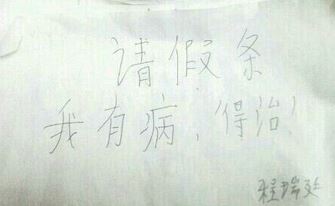 请假条
我有病，得治！
程瑞